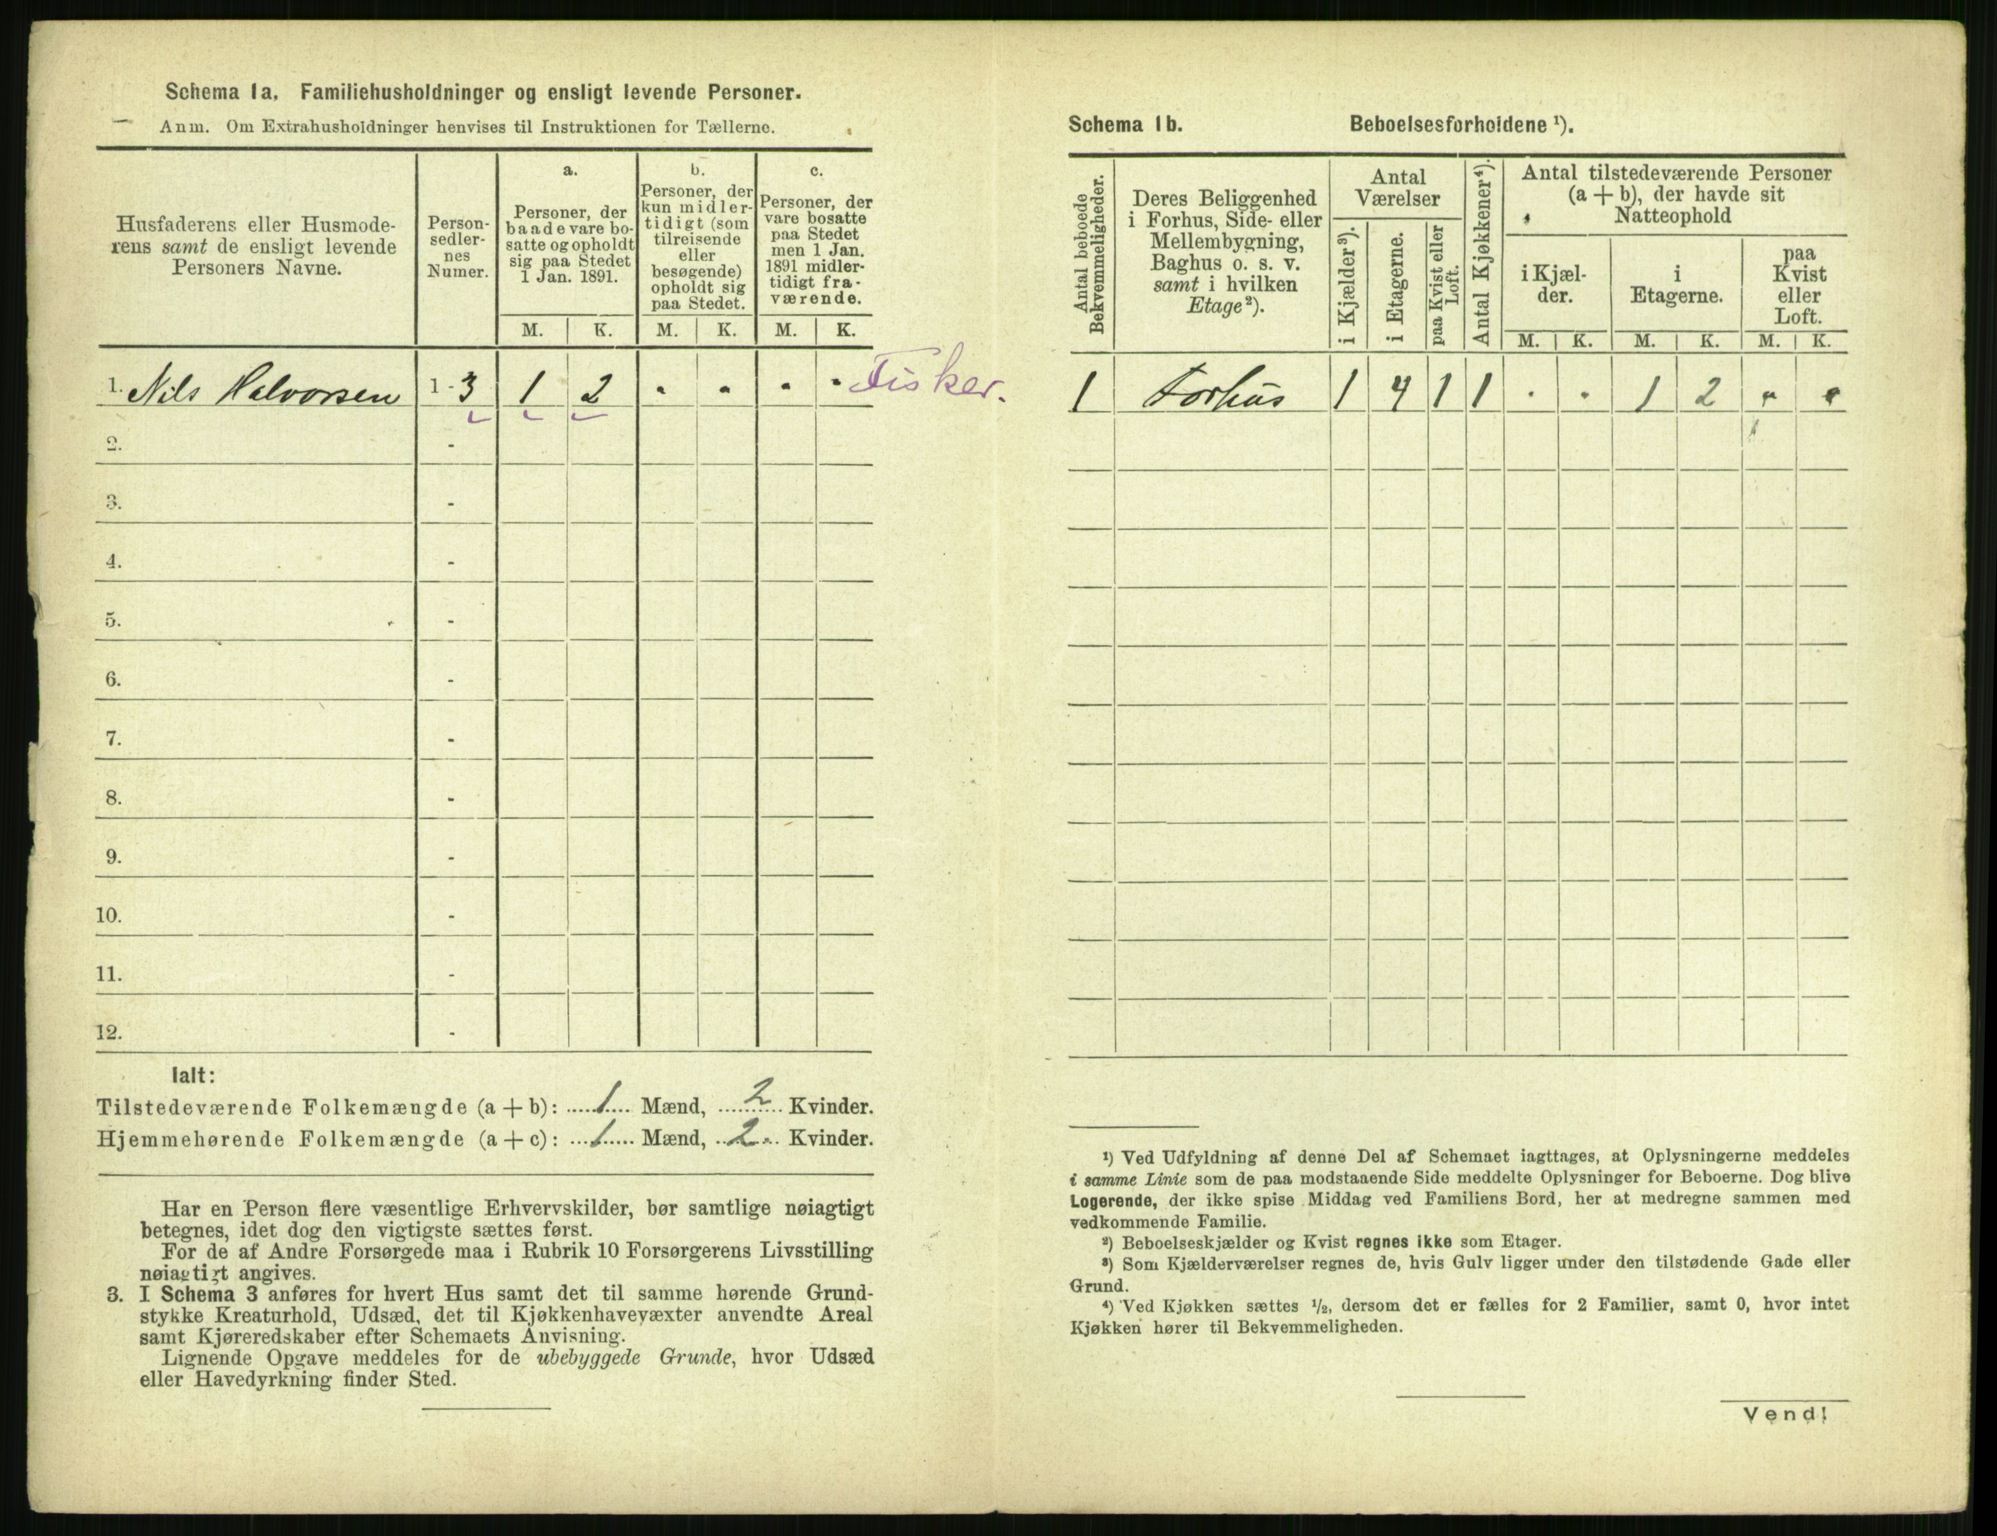 Schema 1a. Familiehusholdninger og ensligt levende Personer.
Anm. Om Extrahusholdninger henvises til Instruktionen for Tællerne.
Husfaderens eller Husmode-
rens samt de ensligt levende
Personers Navne.
Person-
sedler-
nes
Numer.
a.
Personer, der
baade vare bo-
satte og opholdt
sig paa Stedet
1 Jan. 1891.
b.
Personer, der
kun midler-
tidigt (som
tilreisende
eller
besøgende)
opholdt sig
paa Stedet.
c.
Personer, der
vare bosatte
paa Stedet
men 1 Jan.
1891 midler-
tidigt fra-
værende.
M. K. M. K. M. K.
1. Nils Halvorsen 1 - 3 1 2 " " " " Fisker.
2. -
3. -
4. -
5. -
6. -
7. -
8. -
9. -
10. -
11. -
12. -
Ialt:
Tilstedeværende Folkemængde (a + b): 1 Mænd, 2 Kvinder.
Hjemmehørende Folkemængde (a + c): 1 Mænd, 2 Kvinder.
Har en Person flere væsentlige Erhvervskilder, bør samtlige nøiagtigt
betegnes, idet dog den vigtigste sættes først.
For de af Andre Forsørgede maa i Rubrik 10 Forsørgerens Livsstilling
nøiagtigt angives.
3. I Schema 3 anføres for hvert Hus samt det til samme hørende Grund-
stykke Kreaturhold, Udsæd, det til Kjøkkenhavevæxter anvendte Areal
samt Kjøreredskaber efter Schemaets Anvisning.
Lignende Opgave meddeles for de ubebyggede Grunde, hvor Udsæd
eller Havedyrkning finder Sted.
Schema 1b. Beboelsesforholdene ¹).
Antal beboede
Bekvemmeligheder.
Deres Beliggenhed
i Forhus, Side- eller
Mellembygning,
Baghus o. s. v.
samt i hvilken
Etage²).
Antal
Værelser
i Kjælder³).
i Etagerne.
paa Kvist eller
Loft.
Antal Kjøkkener⁴).
Antal tilstedeværende Personer
(a + b), der havde sit
Natteophold
i Kjæl-
der.
i
Etagerne.
paa
Kvist
eller
Loft.
M. K. M. K. M. K.
1 Forhus 1 4 1 1 " " 1 2 " "
¹) Ved Udfyldning af denne Del af Schemaet iagttages, at Oplysningerne meddeles
i samme Linie som de paa modstaaende Side meddelte Oplysninger for Beboerne. Dog blive
Logerende, der ikke spise Middag ved Familiens Bord, her at medregne sammen med
vedkommende Familie.
²) Beboelseskjælder og Kvist regnes ikke som Etager.
³) Som Kjælderværelser regnes de, hvis Gulv ligger under den tilstødende Gade eller
Grund.
⁴) Ved Kjøkken sættes ½, dersom det er fælles for 2 Familier, samt 0, hvor intet
Kjøkken hører til Bekvemmeligheden.
Vend!